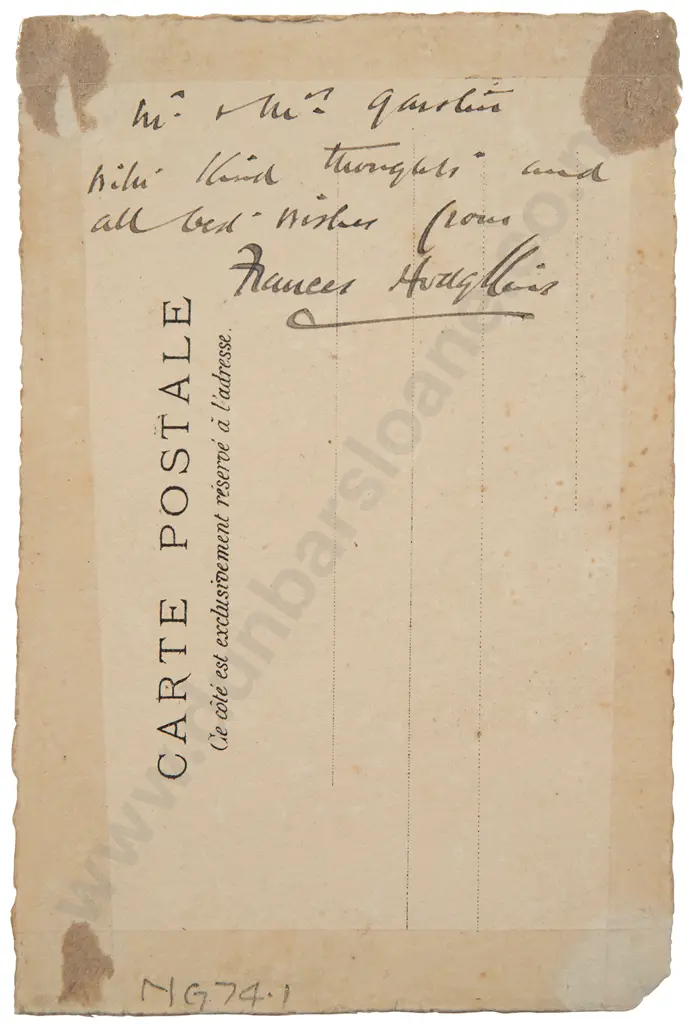 Mr. & Mrs. Garstin
with kind thoughts and
all best wishes from
Frances Hodgkins
CARTE POSTALE
Ce côté est exclusivement réservé à l'adresse.
NG74.1
www.dunbarsloane.co.nz